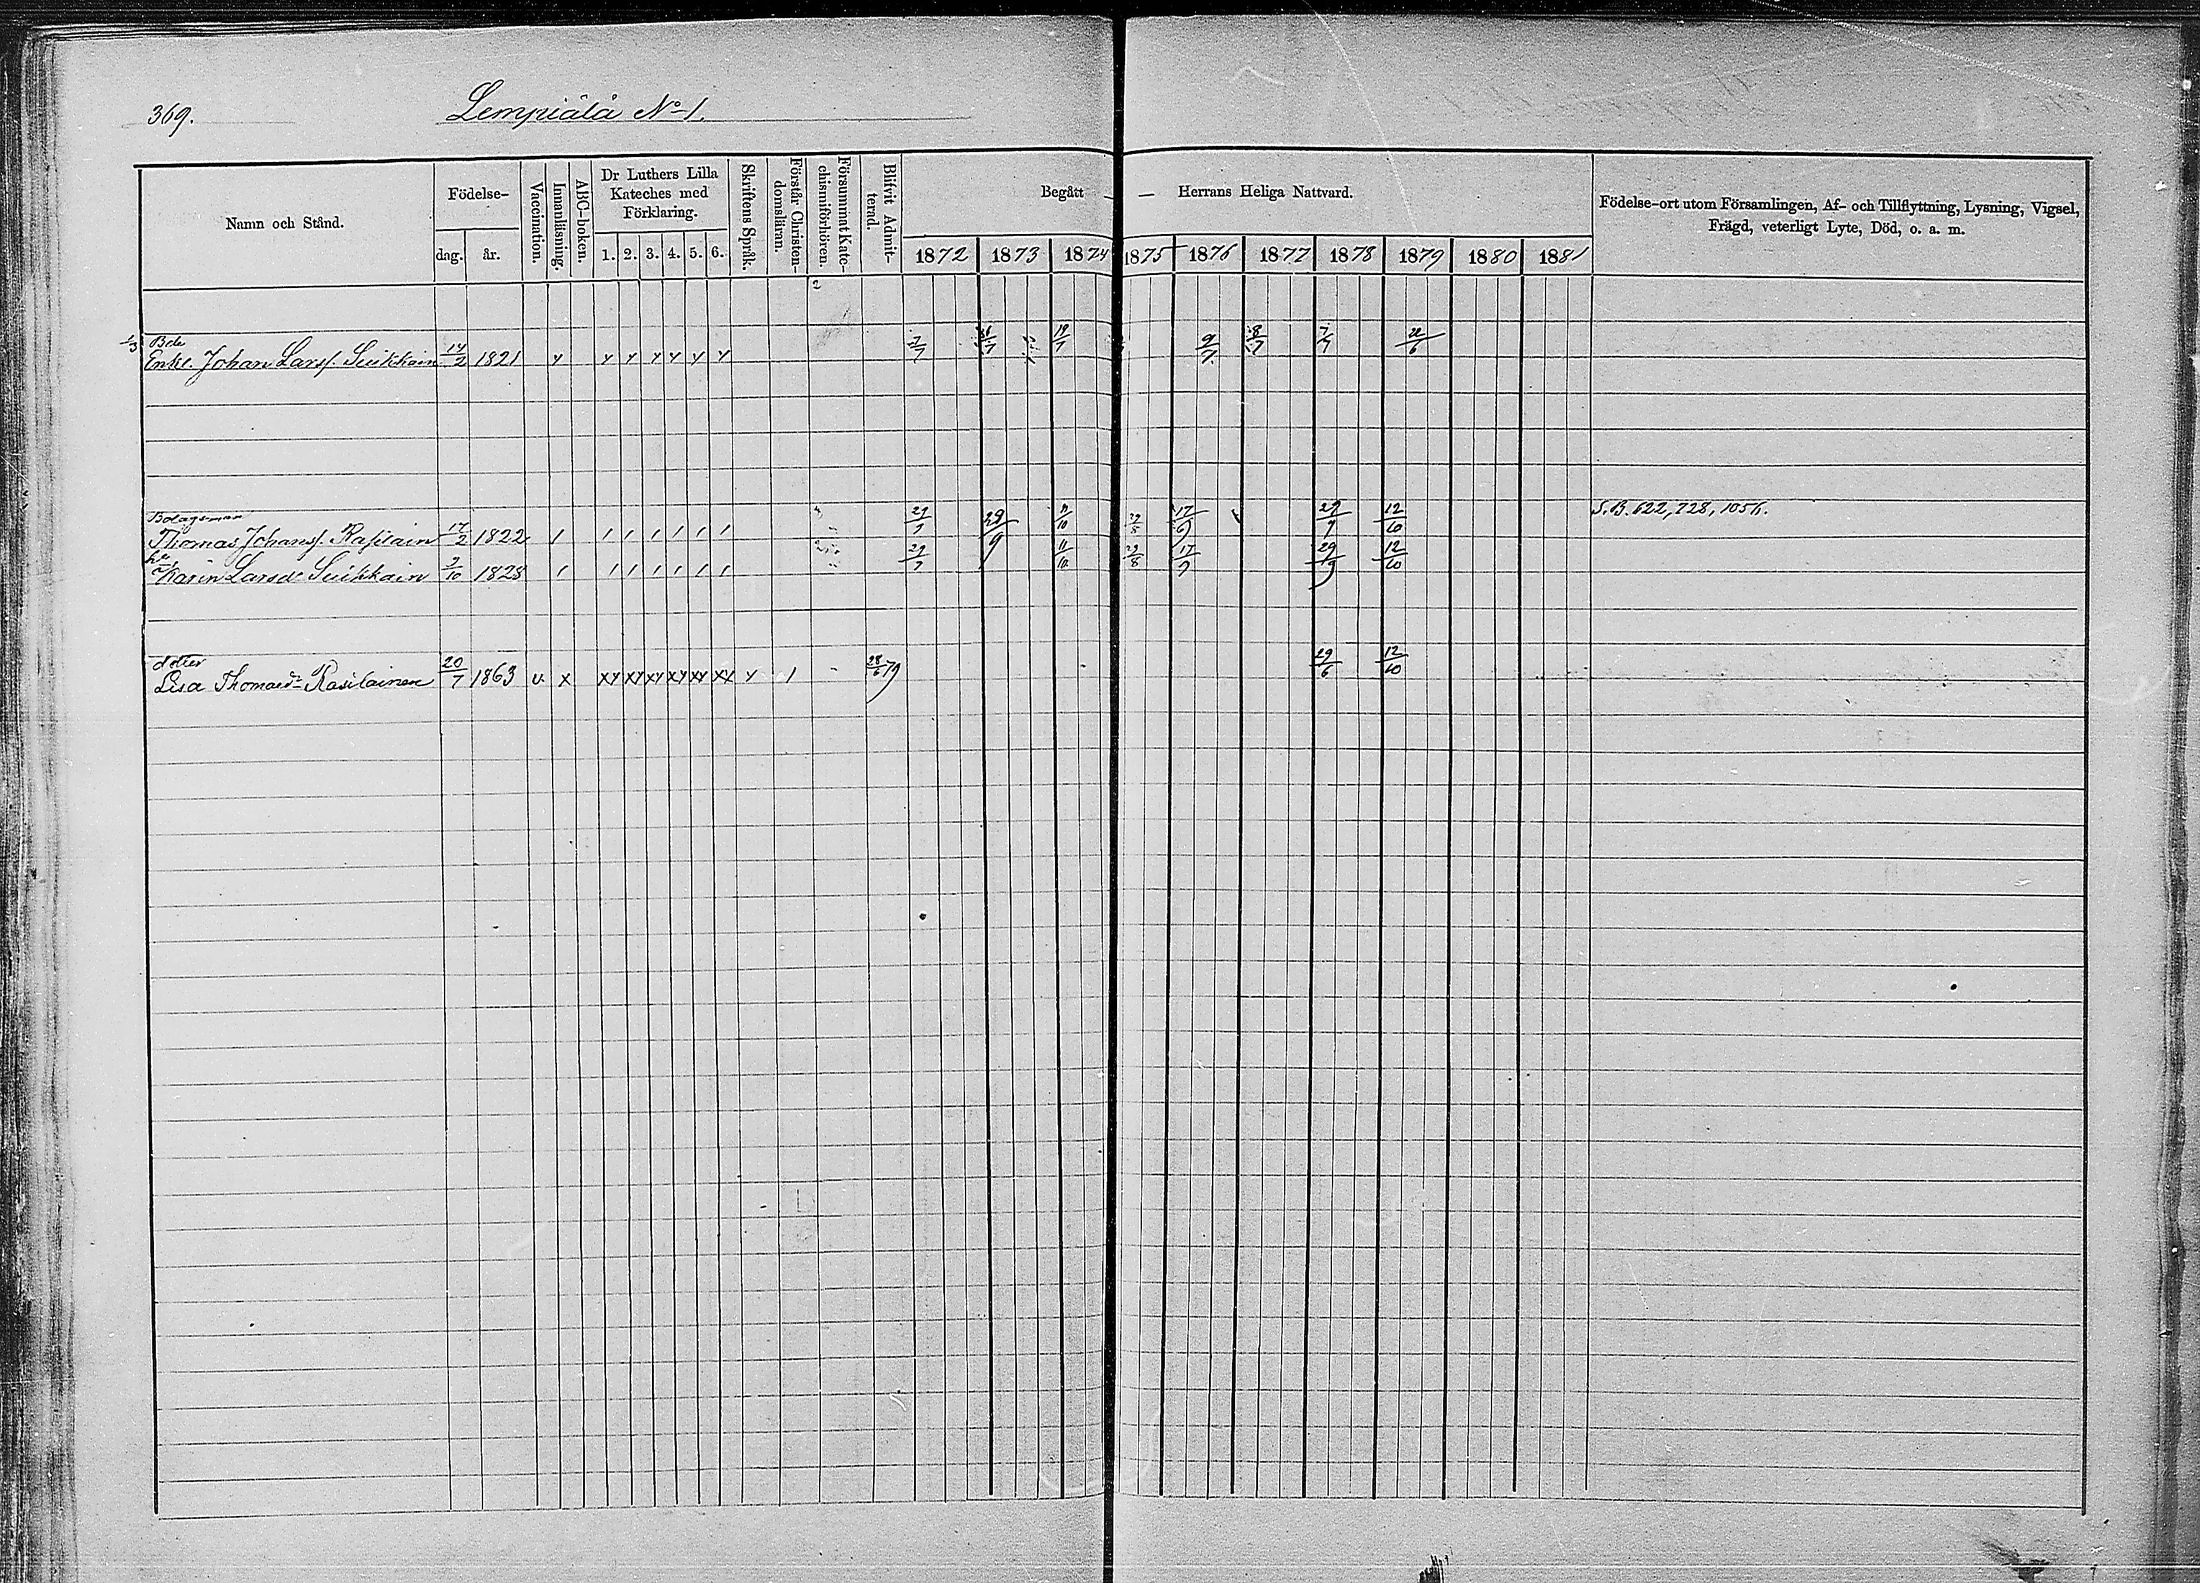 369.
Lempiälä No 1.
Namn och Stånd.
Födelse-
dag.
år.
Vaccination.
Innanläsning.
ABC-boken.
Dr Luthers Lilla
Kateches med
Förklaring.
1. 2. 3. 4. 5. 6.
Skriftens Språk.
Förstår Christen-
domsläran.
Försummat Kate-
chismiförhören.
Blifvit Admit-
terad.
Begått — Herrans Heliga Nattvard.
1872 1873 1874 1875 1876 1877 1878 1879 1880 1881
Födelse-ort utom Församlingen, Af- och Tillflyttning, Lysning, Vigsel,
Frägd, veterligt Lyte, Död, o. a. m.
Enkl. Johan Larsf. Suikkain 14/2 1821 7/7 9/7 8/7 7/7
Bolagsman 29/9 29/9 17/9 29/9 12/10 S.B. 622, 728, 1056.
Thomas Johansf. Rasilain 17/2 1822
Karin Larsdr Suikkain 1828 29/9 11/10 29/8 17/9 29/9 12/10
dotter
Lisa Thomasdr Rasilainen 20/7 1863 v x xy xy xy xy xy xx y 1 28/6 79 29/6 12/10